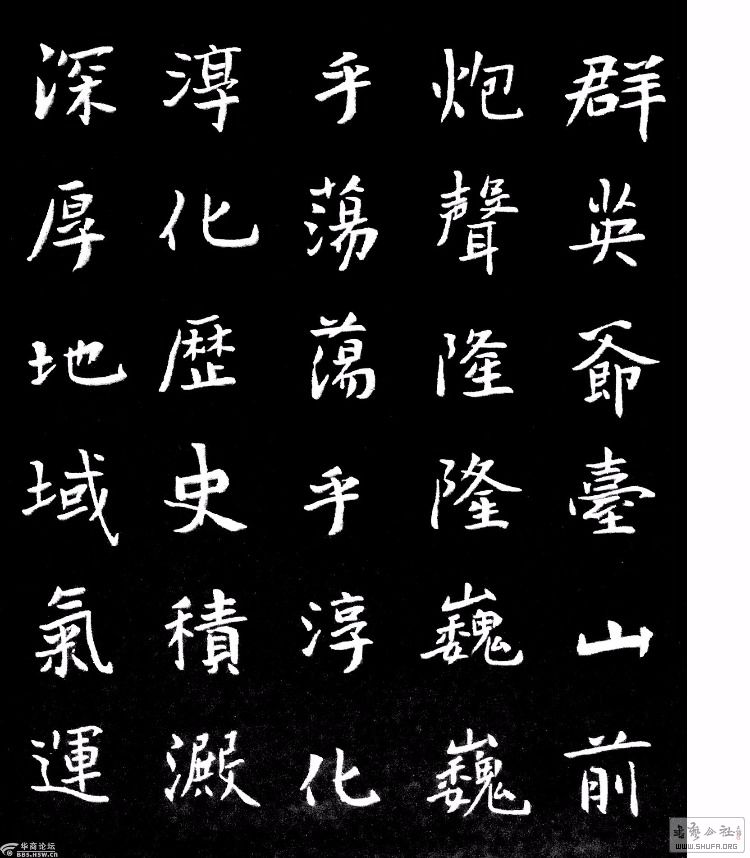 群英爺臺山前
炮聲隆隆巍巍
乎蕩蕩乎淳化
淳化歷史積澱
深厚地域氣運
华商论坛
BBS.HSW.CN
公社
WWW.SHUFA.ORG